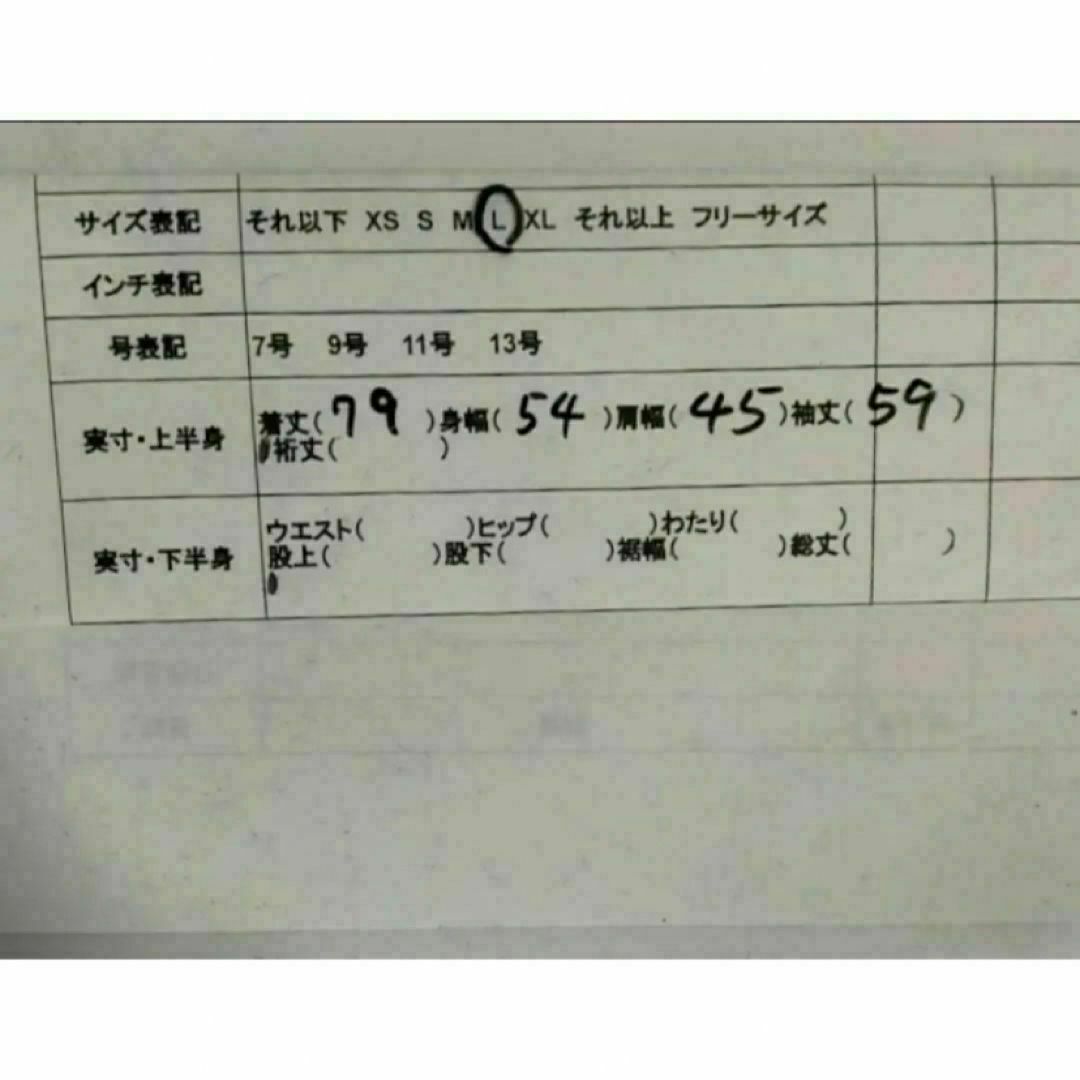 サイズ表記 それ以下 XS S M L XL それ以上 フリーサイズ
インチ表記
号表記 7号 9号 11号 13号
実寸・上半身 着丈( 79 )身幅( 54 )肩幅( 45 )袖丈( 59 )
裄丈( )
実寸・下半身 ウエスト( )ヒップ( )わたり( )
股上( )股下( )裾幅( )総丈( )